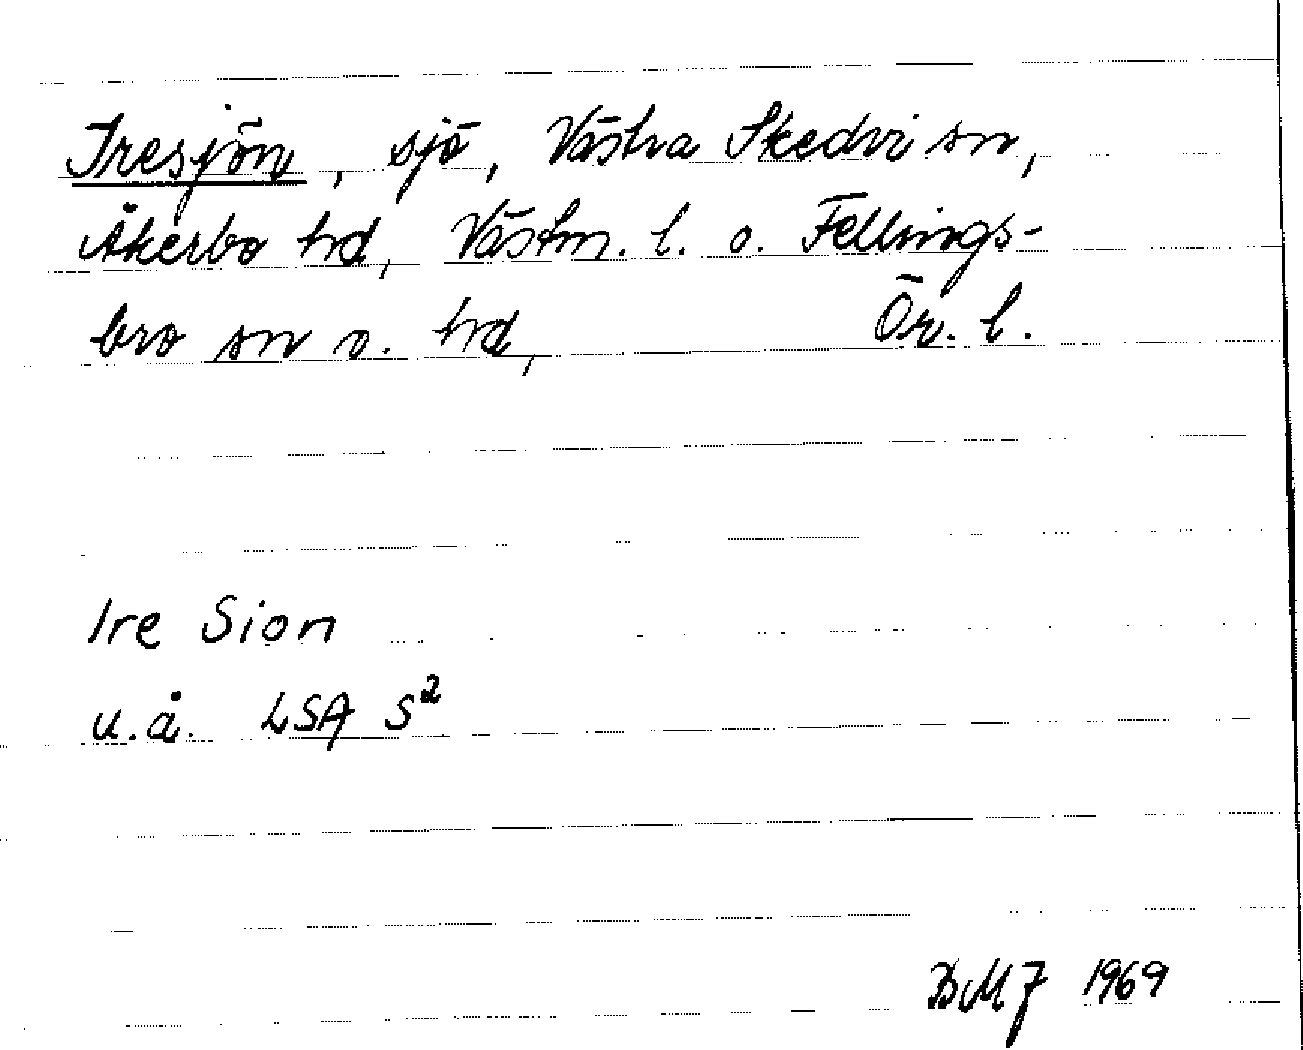 Iresjön, sjö, Västra Skedvi sn,
Åkerbo hd, Västm. l. o. Fellings-
bro sn o. hd, Ör. l.
Ire Sion
u.å. LSA S²
BMJ 1969